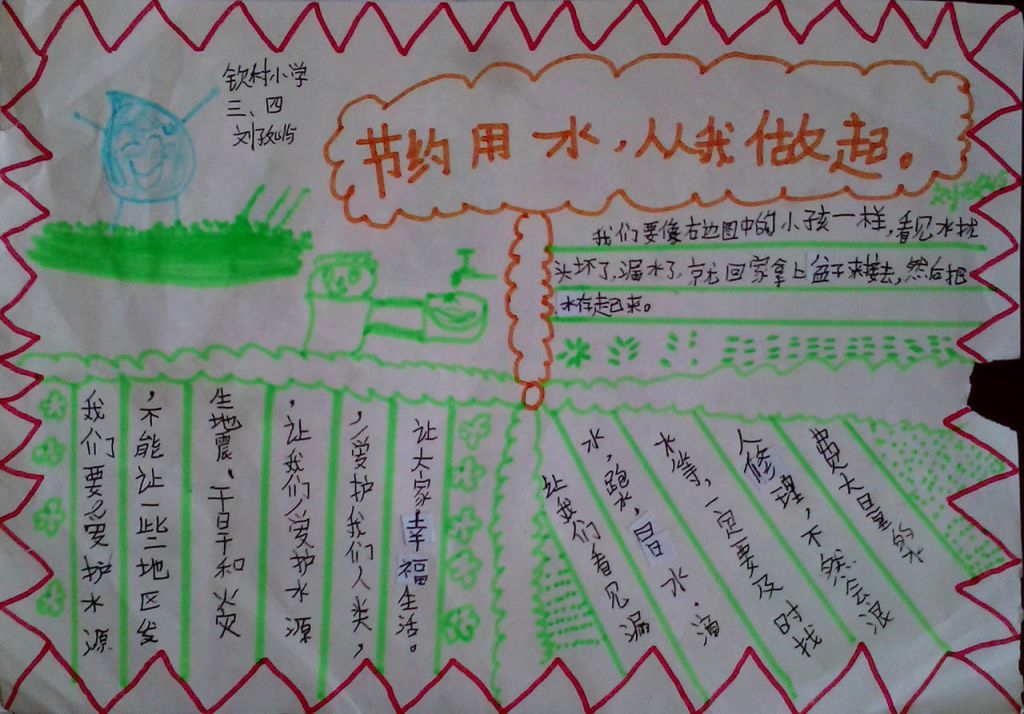 钦村小学
三、四
节约用水，从我做起。
我们要像右边图中的小孩一样，看见水找
头坏了，漏水了，就回家拿上盆子来接去，然后把
水存起来。
我们要爱护水源
，不能让一些地区发
生地震、干旱和火灾
，让我们爱护水源
，爱护我们人类，
让大家幸福生活。
让我们看见漏
水，跑水，冒水，滴
水等，一定要及时找
人修理，不然会浪
费大量的水